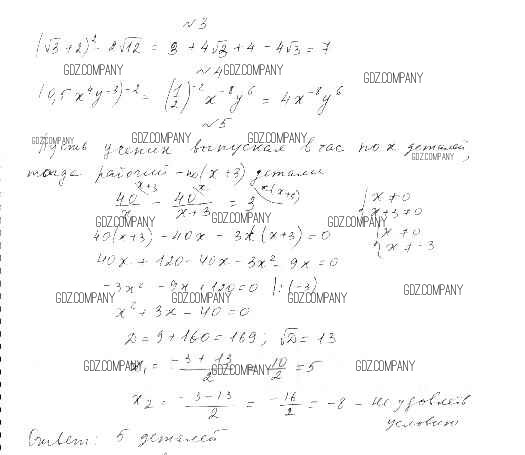 №3
(√3+2)² - 2√12 = 3 + 4√3 + 4 - 4√3 = 7
GDZ.COMPANY
№4 GDZ.COMPANY GDZ.COMPANY
(0,5x⁴y⁻³)⁻² = (1/2)⁻² x⁻⁸y⁶ = 4x⁻⁸y⁶
№5
GDZ.COMPANY GDZ.COMPANY GDZ.COMPANY
Пусть ученик выпускал в час по x деталей,
GDZ.COMPANY
тогда рабочий - по (x+3) детали
40/x - 40/(x+3) = 3 { x ≠ 0
x+3 ≠ 0
GDZ.COMPANY GDZ.COMPANY GDZ.COMPANY
40(x+3) - 40x - 3x(x+3) = 0 { x ≠ 0
x ≠ -3
40x + 120 - 40x - 3x² - 9x = 0
-3x² - 9x + 120 = 0 |:(-3)
GDZ.COMPANY GDZ.COMPANY GDZ.COMPANY GDZ.COMPANY
x² + 3x - 40 = 0
D = 9 + 160 = 169; √D = 13
x₁ = (-3+13)/2 = 10/2 = 5
GDZ.COMPANY GDZ.COMPANY GDZ.COMPANY
x₂ = (-3-13)/2 = -16/2 = -8 - не удовлетв
условию
Ответ: 5 деталей